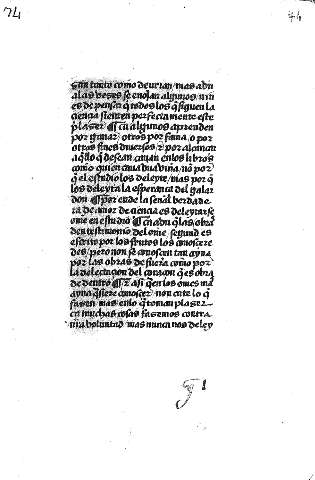 74
44
gan tanto como deurian mas aun
alas veses se enojan algunos nin
es de pensar q̃ todos los q̃ siguen la
çiençia sienten perfectamente este
plaser ¶ ca algunos aprenden
por ganar otros por fama o por
otros fines diuersos
como quien caua
q̃ el estudio los deleyte mas por q̃
los deleyta la esperança del galar
don ¶ por ende la señal verdade
ra de amor de çiençia es deleytar se
ome en estudio ¶ ca aun q̃ las obras
den testimonio del ome segund es
escrito por los frutos los conosçere
des pero non se conosçen tan ayna
por las obras de fuera como por
la delectaçion del coraçon q̃ es obra
de dentro ¶ asi q̃ en los omes mas
ayna q̃siere conosçer non cate lo q̃
fasen mas en lo q̃ toman plaser
ca muchas cosas fasemos contra
nra voluntad mas nunca nos deley